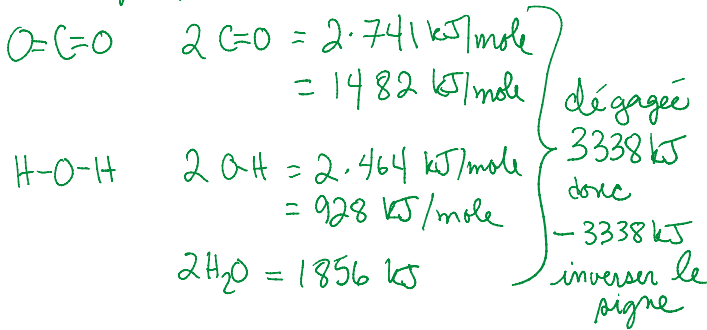 O=C=O 2 C=O = 2·741 kJ/mole
= 1482 kJ/mole
H-O-H 2 O-H = 2·464 kJ/mole
= 928 kJ/mole
2H₂O = 1856 kJ
dégagée
3338 kJ
donc
-3338 kJ
inverser le
signe